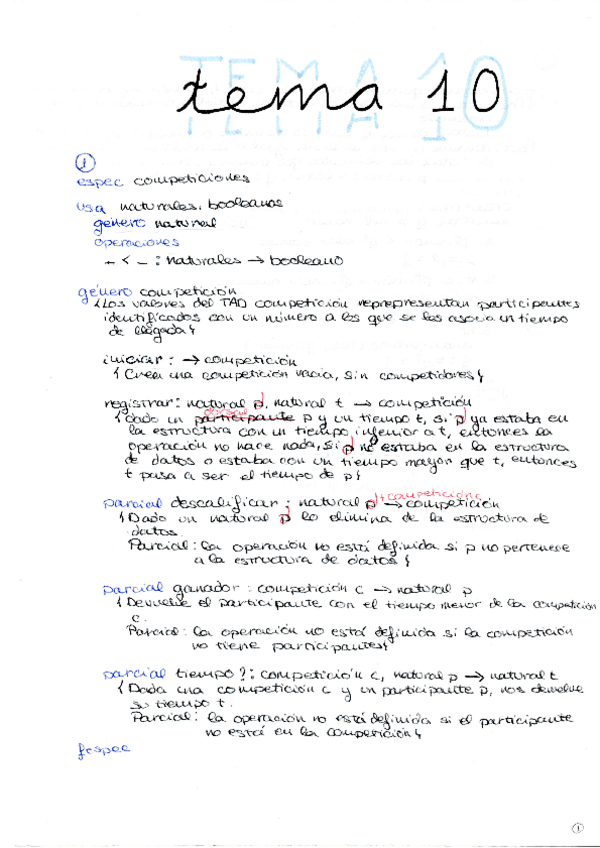 TEMA 10
tema 10
1
espec competiciones
usa naturales, booleanos
género natural
operaciones
_ < _ : naturales → booleano
género competición
{Los valores del TAD competición reprepresentan participantes
identificados con un número a los que se les asocia un tiempo
de llegada}
iniciar: → competición
{Crea una competición vacía, sin competidores}
registrar: natural p, natural t → competición
{dado un participante p y un tiempo t, si p ya estaba en
la estructura con un tiempo inferior a t, entonces la
operación no hace nada, si p no estaba en la estructura
de datos o estaba con un tiempo mayor que t, entonces
t pasa a ser el tiempo de p}
parcial descalificar: natural p, competición c → competición
{Dado un natural p lo elimina de la estructura de
datos
Parcial: la operación no está definida si p no pertenece
a la estructura de datos}
parcial ganador: competición c → natural p
{Devuelve el participante con el tiempo menor de la competición
c.
Parcial: la operación no está definida si la competición
no tiene participantes}
parcial tiempo?: competición c, natural p → natural t
{Dada una competición c y un participante p, nos devuelve
su tiempo t.
Parcial: la operación no está definida si el participante
no está en la competición}
fespec
1